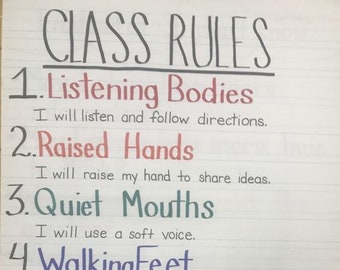 CLASS RULES
1. Listening Bodies
I will listen and follow directions.
2. Raised Hands
I will raise my hand to share ideas.
3. Quiet Mouths
I will use a soft voice.
4 Walking Feet